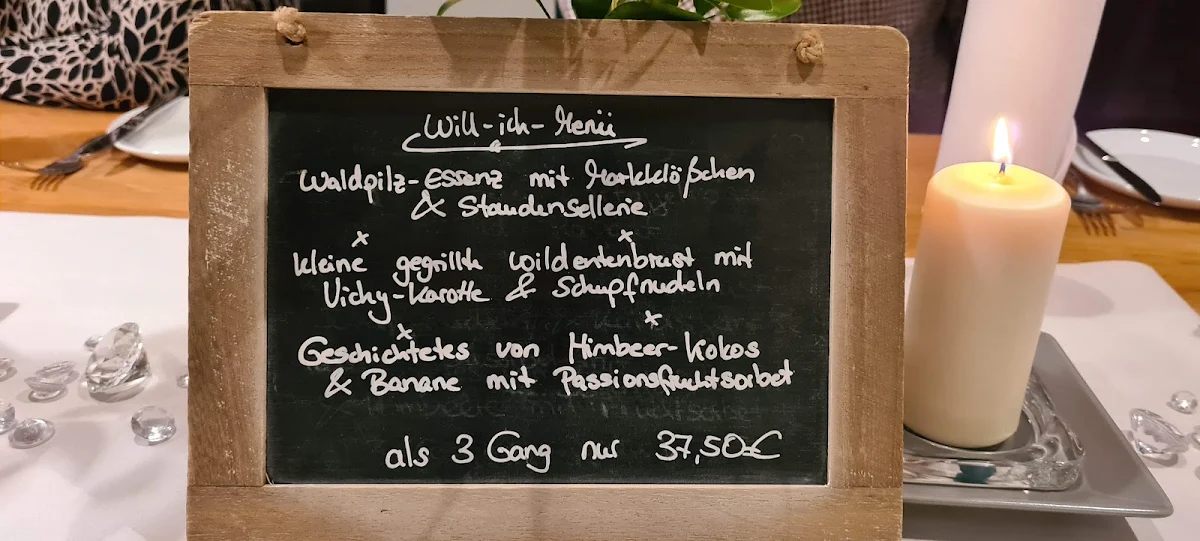 Will-ich-Menü
Waldpilz-Essenz mit Markklößchen
& Staudensellerie
x x
kleine gegrillte Wildentenbrust mit
Vichy-Karotte & Schupfnudeln
x x
Geschichtetes von Himbeer-Kokos
& Banane mit Passionsfruchtsorbet
als 3 Gang nur 37,50€